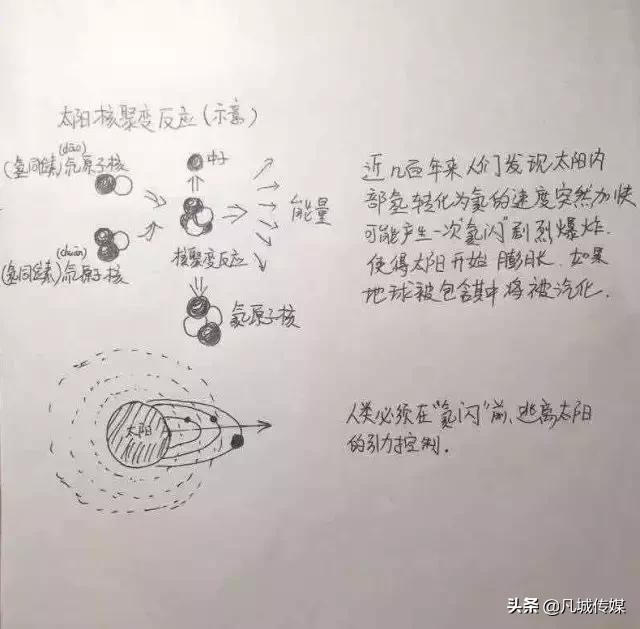 太阳核聚变反应(示意)
(氢同位素)氘原子核
(dāo)
中子
能量
核聚变反应
(chuān)
(氢同位素)氚原子核
氦原子核
近几百年来人们发现太阳内
部氢转化为氦的速度突然加快
可能产生一次“氦闪”剧烈爆炸.
使得太阳开始膨胀.如果
地球被包含其中将被汽化.
太阳
人类必须在“氦闪”前,逃离太阳
的引力控制.
头条 @凡城传媒